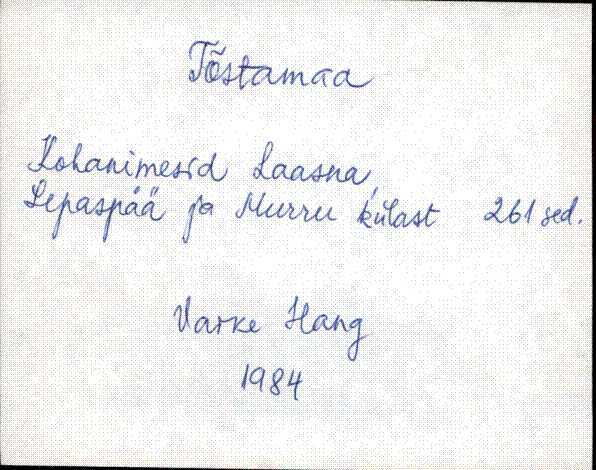 Tõstamaa
Kohanimesid Kaasna,
Lepaspää ja Murru külast 261 sed.
Varke Hang
1984